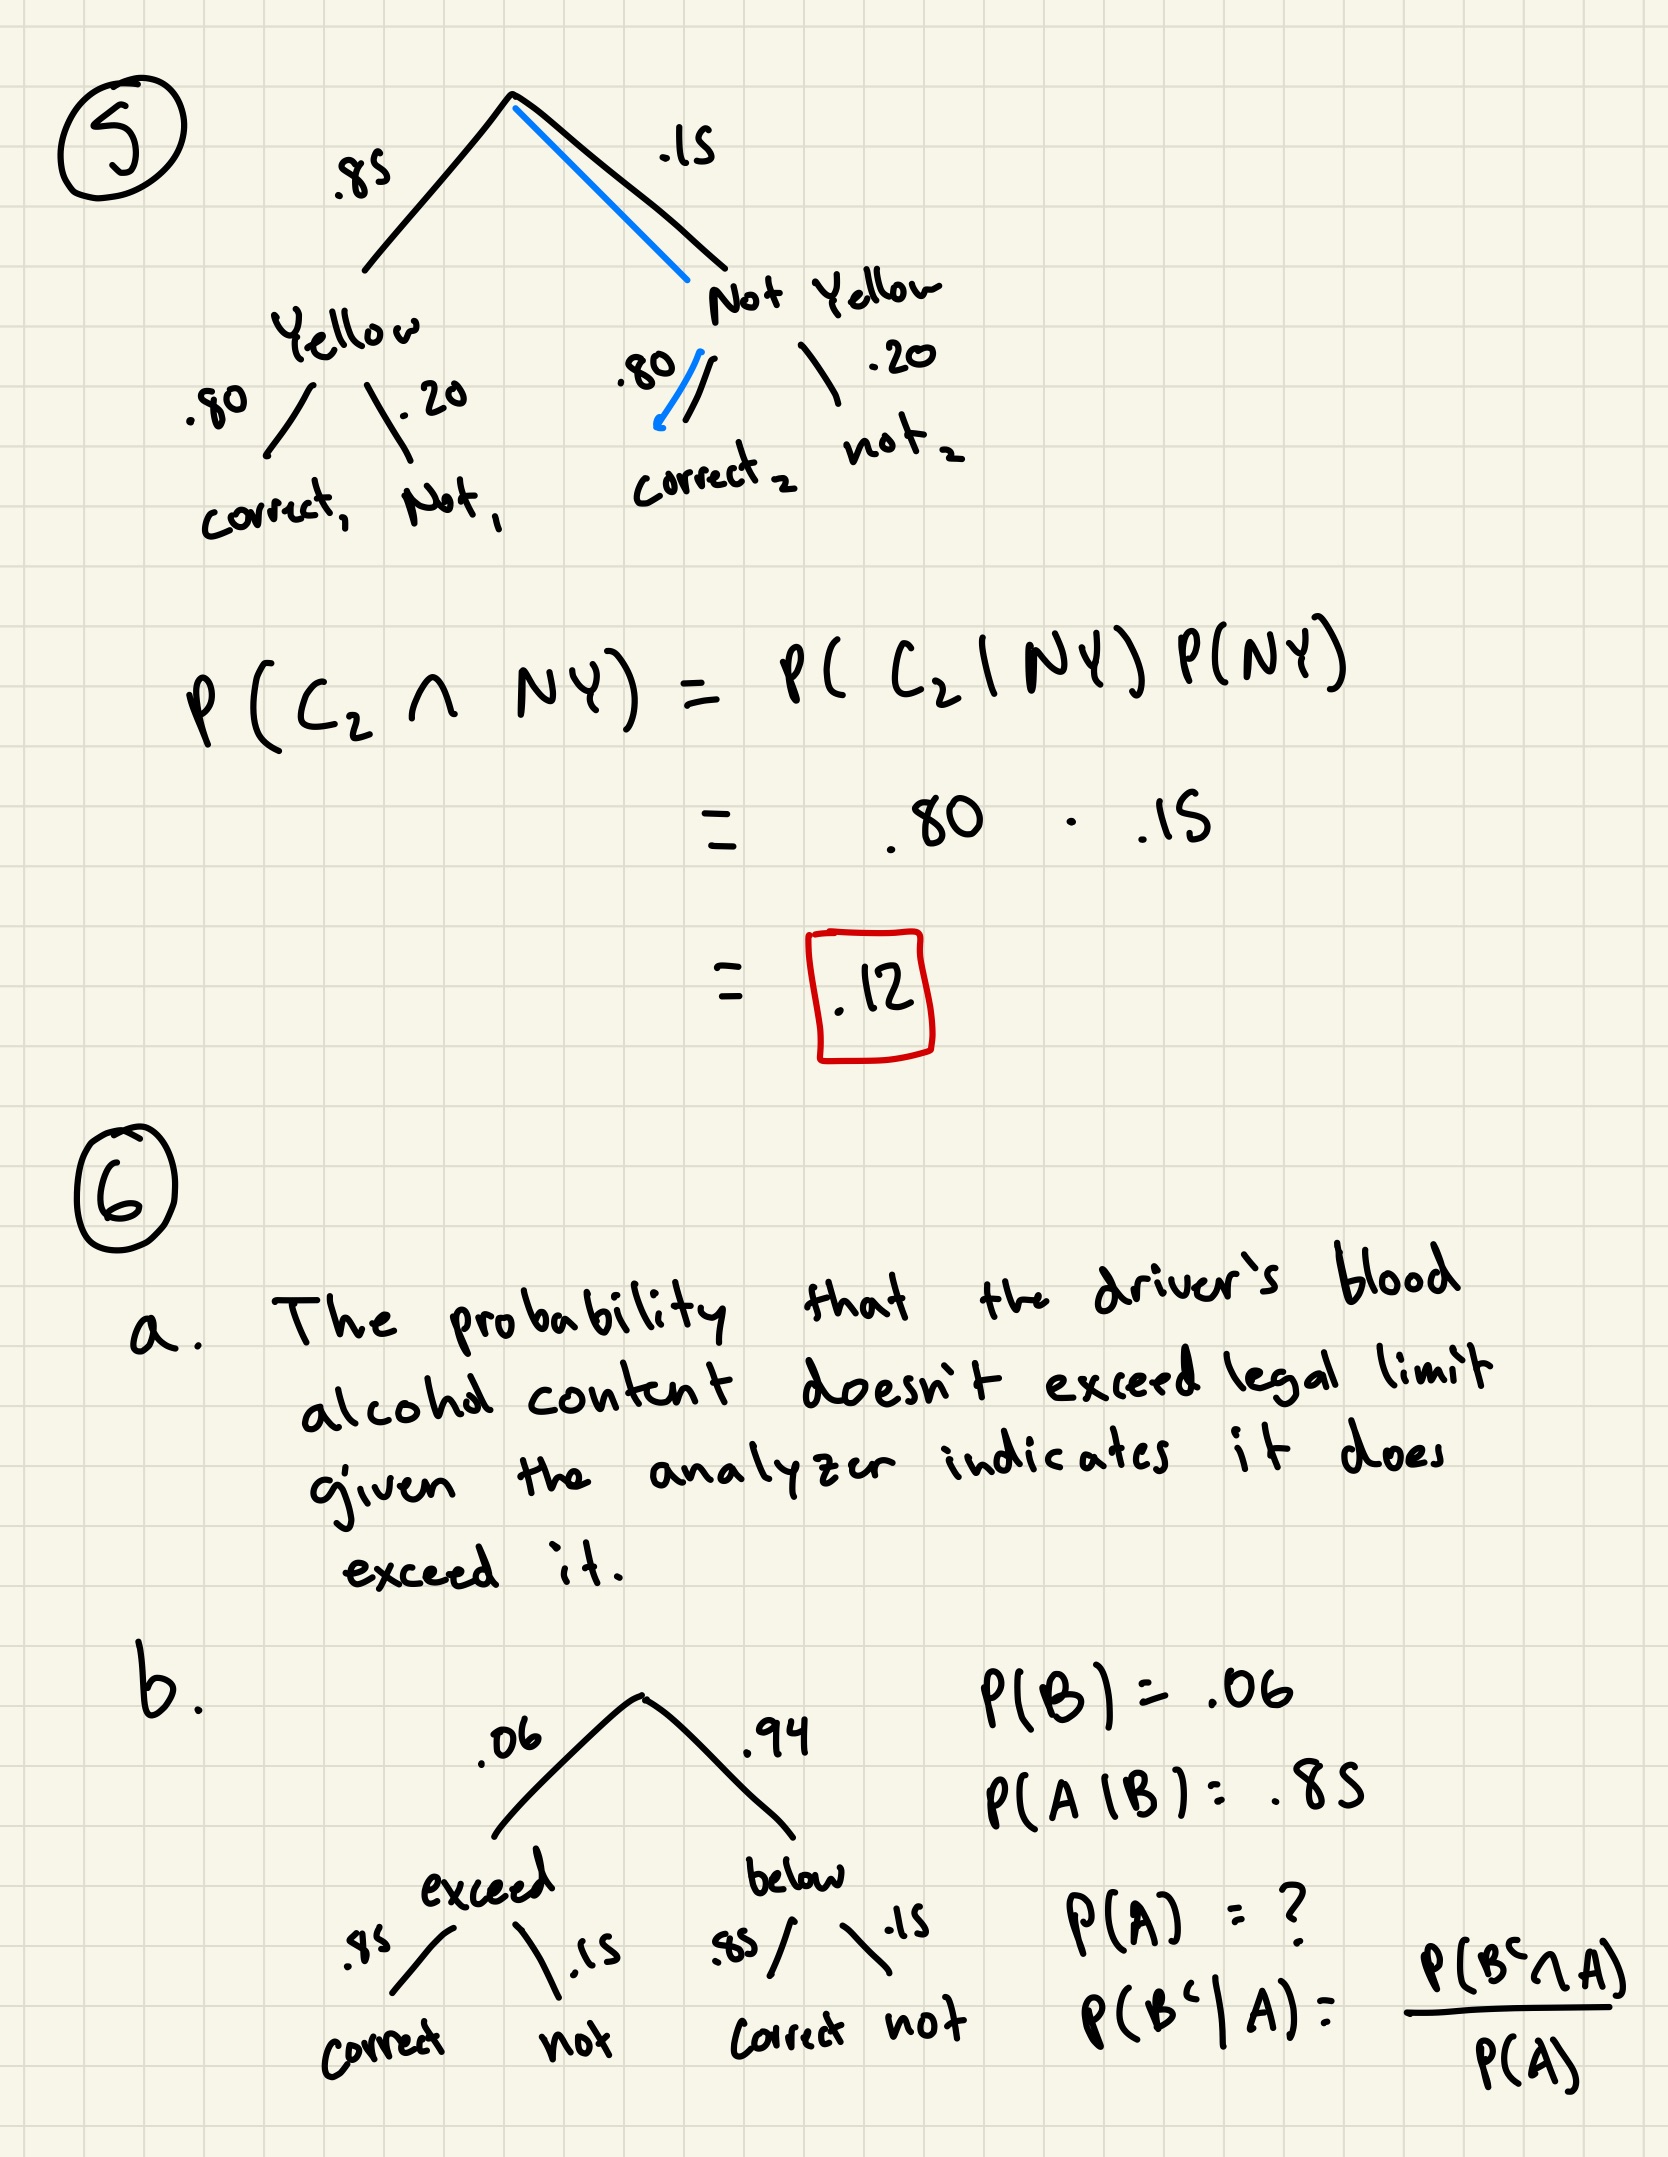 5
.85
.15
Yellow
Not Yellow
.80
.20
.80
.20
correct₁
Not₁
correct₂
not₂
P(C₂ ∩ NY) = P(C₂ | NY) P(NY)
= .80 · .15
= .12
6
a. The probability that the driver's blood
alcohol content doesn't exceed legal limit
given the analyzer indicates it does
exceed it.
b.
.06
.94
exceed
below
.85
.15
.85
.15
correct
not
correct
not
P(B) = .06
P(A|B) = .85
P(A) = ?
P(Bᶜ|A) = P(Bᶜ∩A) / P(A)